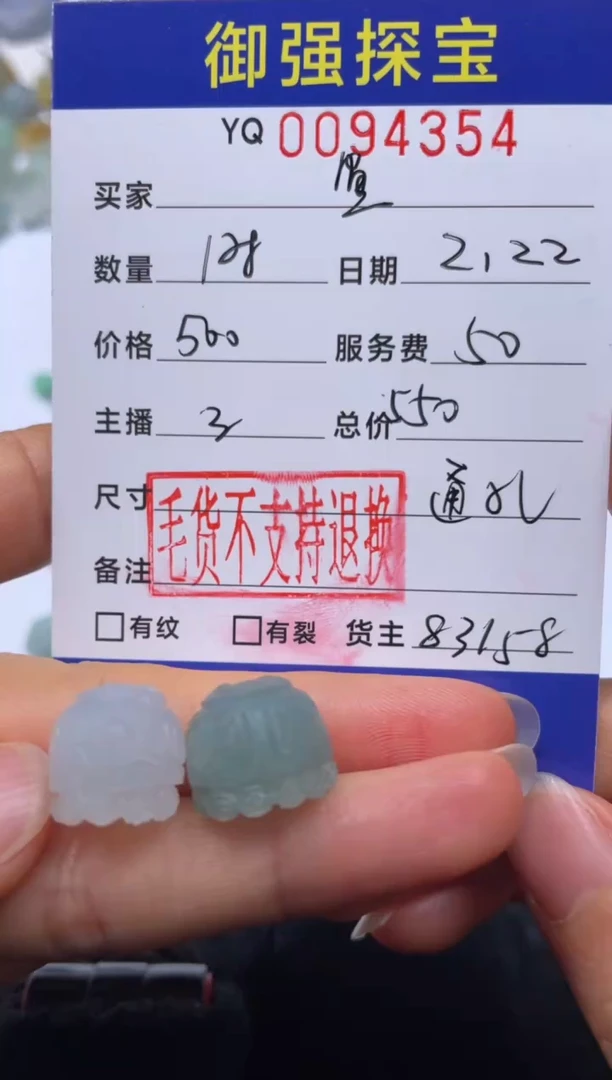 御强探宝
YQ 0094354
买家
数量 1对 日期 2,22
价格 500 服务费 50
主播 3 总价 550
尺寸 通孔
毛货不支持退换
备注
□有纹 □有裂 货主 83158